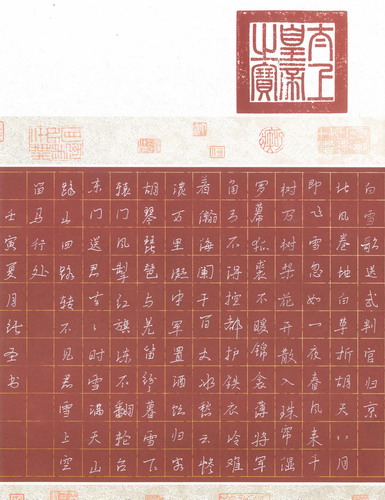 太上
皇帝
之寶
白雪歌送武判官归京
北风卷地白草折胡天八月
即飞雪忽如一夜春风来千
树万树梨花开散入珠帘湿
罗幕狐裘不暖锦衾薄将军
角弓不得控都护铁衣冷难
着瀚海阑干百丈冰愁云惨
淡万里凝中军置酒饮归客
胡琴琵琶与羌笛纷暮雪下
辕门风掣红旗冻不翻轮台
东门送君去去时雪满天山
路山回路转不见君雪上空
留马行处
壬寅夏月书